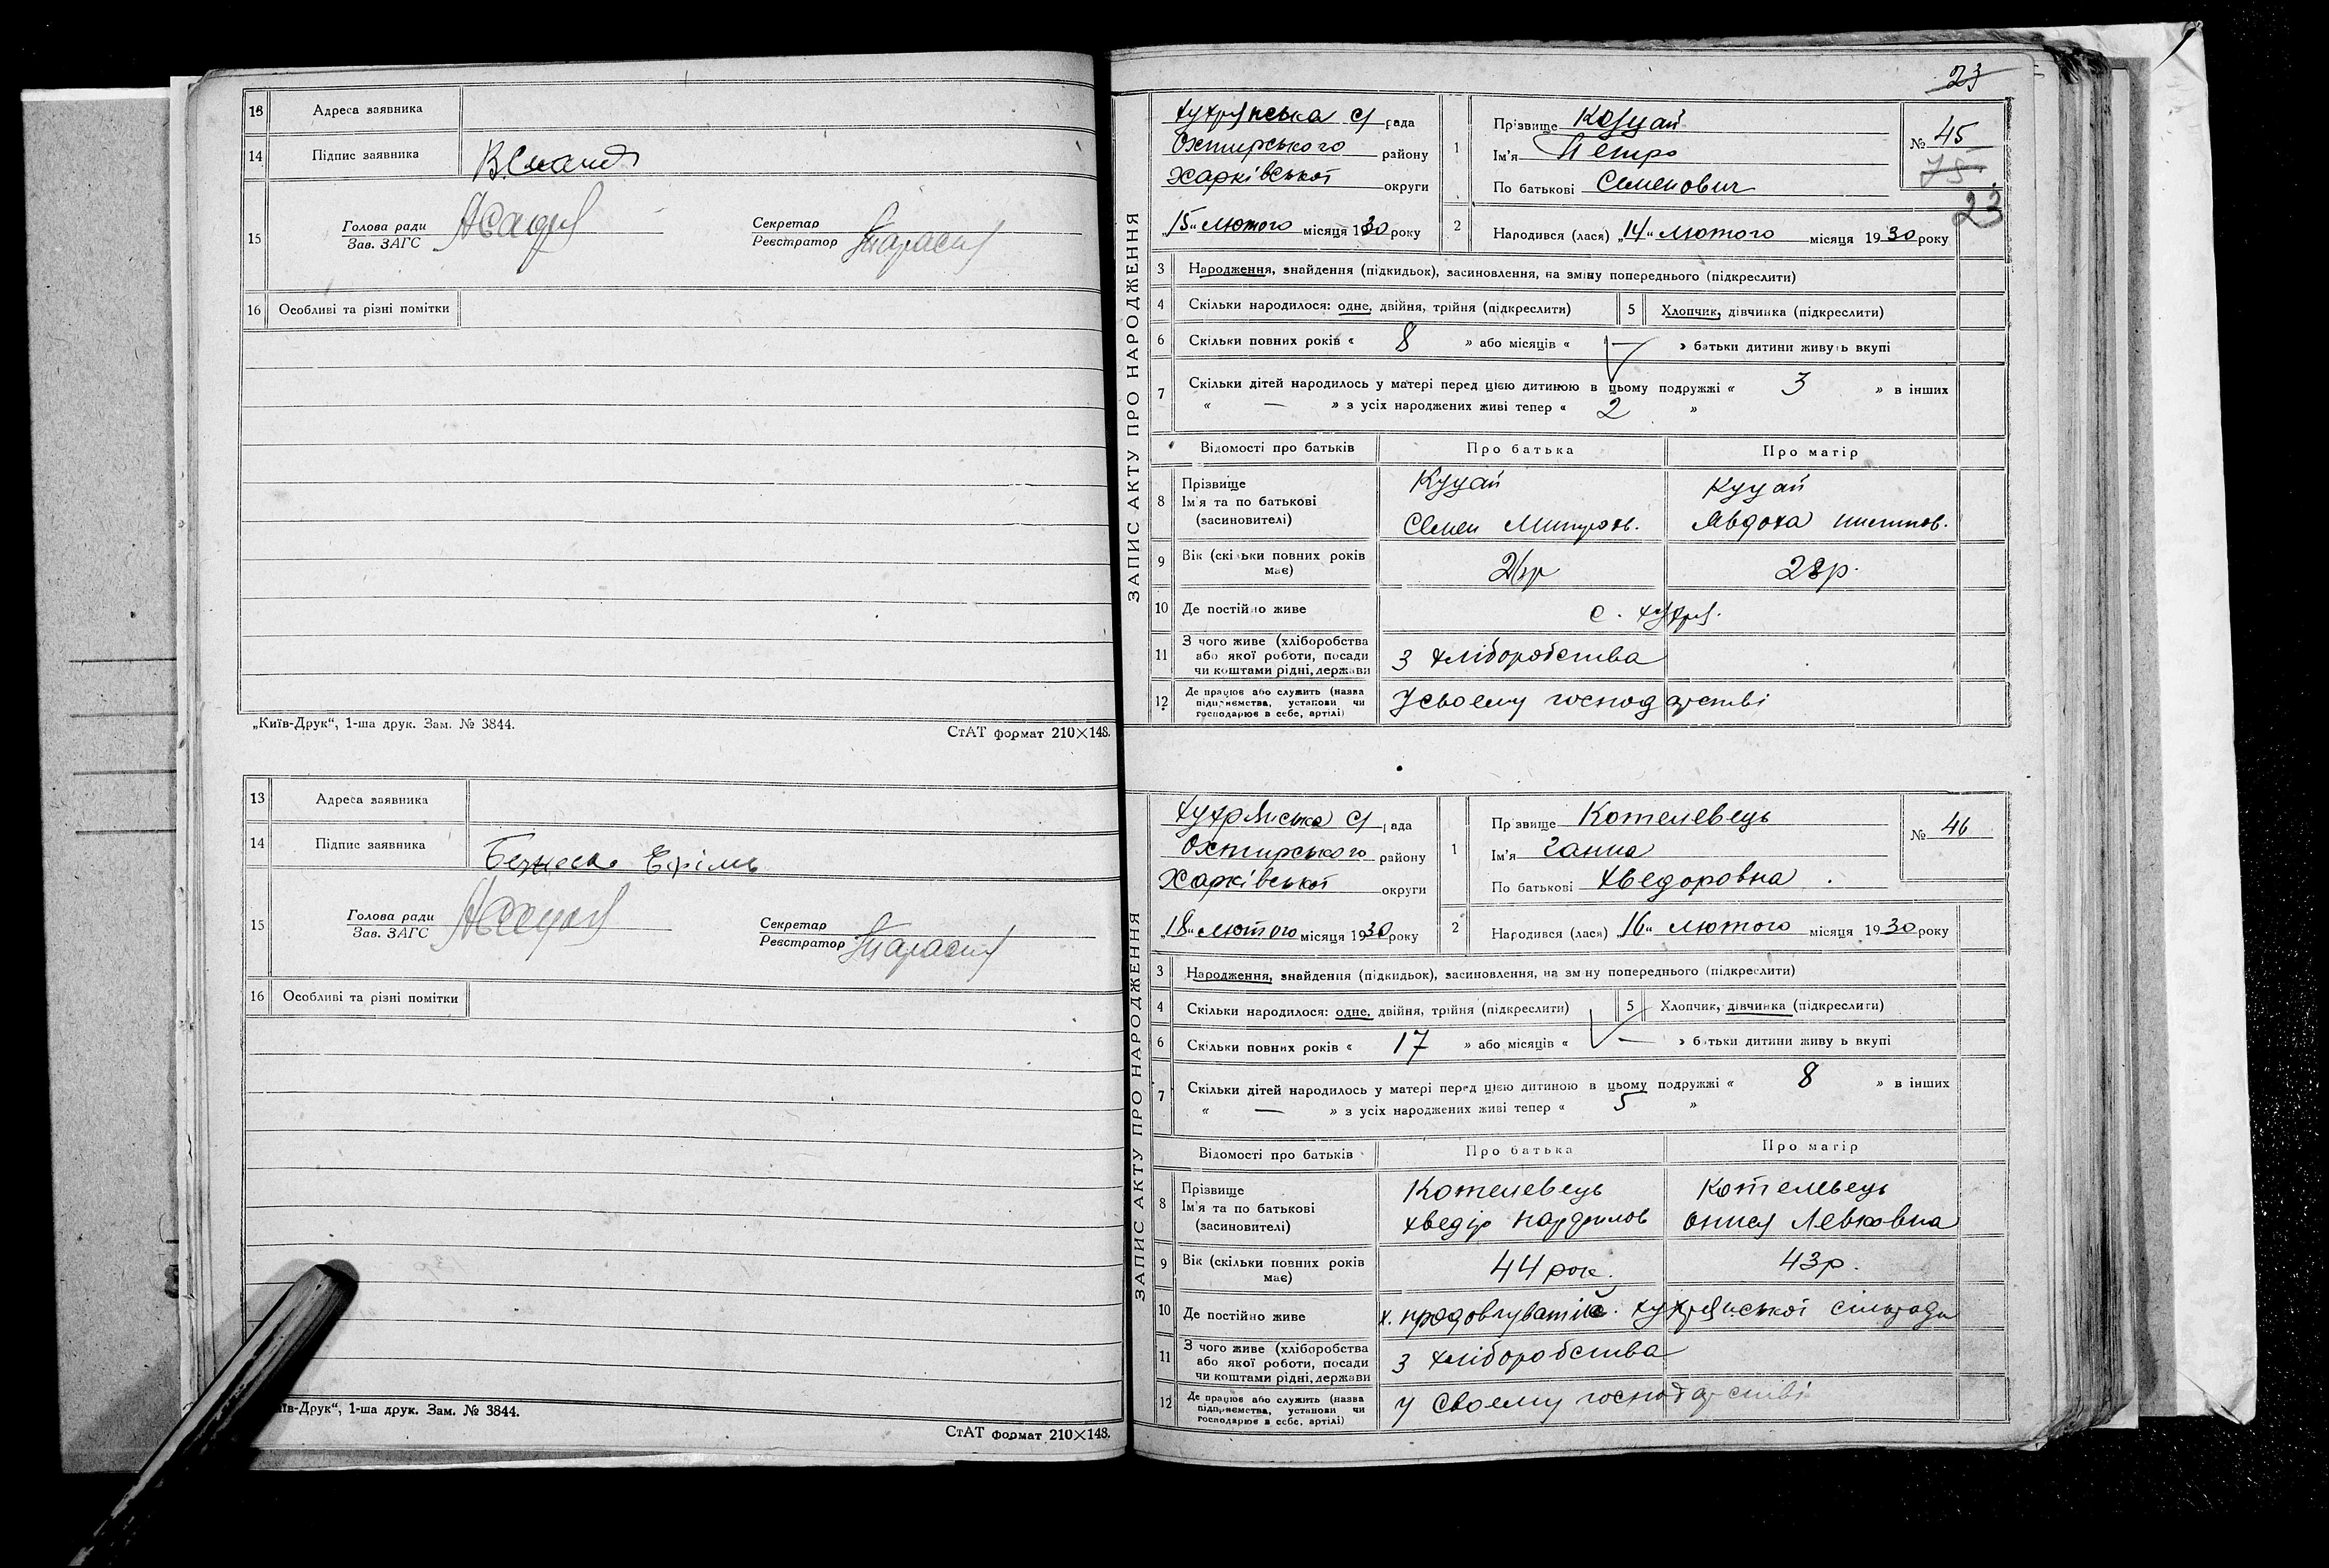 13 Адреса заявника
14 Підпис заявника
15 Голова ради Секретар
Зав. ЗАГС Реєстратор
16 Особливі та різні помітки
„Київ-Друк“, 1-ша друк. Зам. № 3844.
СтАТ формат 210×148.
13 Адреса заявника
14 Підпис заявника
15 Голова ради Секретар
Зав. ЗАГС Реєстратор
16 Особливі та різні помітки
їв-Друк“, 1-ша друк. Зам. № 3844.
СтАТ формат 210×148.
23
ЗАПИС АКТУ ПРО НАРОДЖЕННЯ
Хухрянська с/рада
Охтирського району
Харківської округи
„15“ лютого місяця 1930 року
1 Прізвище
Ім'я Петро
По батькові Семенович
№ 45
75
23
2 Народився (лася) „14“ лютого місяця 1930 року
3 Народження, знайдення (підкидьок), засиновлення, на зміну попереднього (підкреслити)
4 Скільки народилося: одне, двійня, трійня (підкреслити) 5 Хлопчик, дівчинка (підкреслити)
6 Скільки повних років « 8 » або місяців « — » батьки дитини живуть вкупі
7 Скільки дітей народилось у матері перед цією дитиною в цьому подружжі « 3 » в інших
« — » з усіх народжених живі тепер « 2 »
Відомості про батьків Про батька Про матір
8 Прізвище Куцай Куцай
Ім'я та по батькові
(засиновителі) Семен Митроф. Явдоха
9 Вік (скільки повних років має) 26р 28р.
10 Де постійно живе с. Хухря.
11 З чого живе (хліборобства
або якої роботи, посади
чи коштами рідні, держави З хліборобства
12 Де працює або служить (назва
підприємства, установи чи
господарює в себе, артілі) У своєму господарстві
ЗАПИС АКТУ ПРО НАРОДЖЕННЯ
Хухрянська с/рада
Охтирського району
Харківської округи
„18“ лютого місяця 1930 року
1 Прізвище Котелевець
Ім'я Ганна
По батькові Хведоровна.
№ 46
2 Народився (лася) „16“ лютого місяця 1930 року
3 Народження, знайдення (підкидьок), засиновлення, на зміну попереднього (підкреслити)
4 Скільки народилося: одне, двійня, трійня (підкреслити) 5 Хлопчик, дівчинка (підкреслити)
6 Скільки повних років « 17 » або місяців « — » батьки дитини живуть вкупі
7 Скільки дітей народилось у матері перед цією дитиною в цьому подружжі « 8 » в інших
« — » з усіх народжених живі тепер « 5 »
Відомості про батьків Про батька Про матір
8 Прізвище Котелевець Котелевець
Ім'я та по батькові
(засиновителі) Хведір Онися Левковна
9 Вік (скільки повних років має) 44 рок. 43р.
10 Де постійно живе х. Хухрянської сільради
11 З чого живе (хліборобства
або якої роботи, посади
чи коштами рідні, держави З хліборобства
12 Де працює або служить (назва
підприємства, установи чи
господарює в себе, артілі) У своєму господарстві